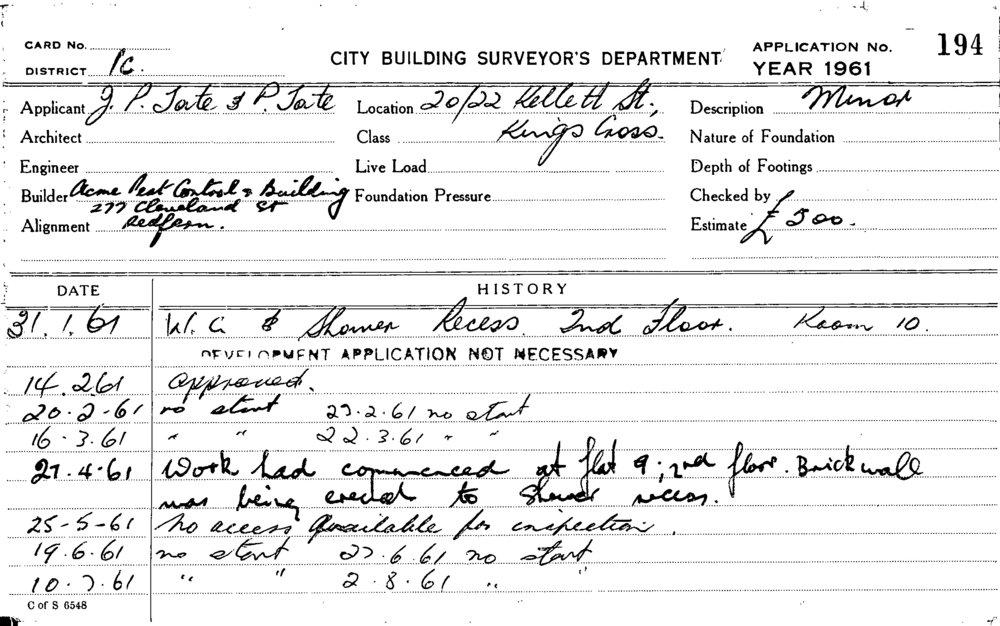 CARD No.
DISTRICT 1C.
CITY BUILDING SURVEYOR'S DEPARTMENT
APPLICATION No. 194
YEAR 1961
Applicant J. P. Tate & P. Tate
Location 20/22 Kellett St.,
Kings Cross.
Description Minor
Architect
Class
Nature of Foundation
Engineer
Live Load
Depth of Footings
Builder Acme Pest Control & Building
277 Cleveland St
Redfern.
Foundation Pressure
Checked by
Alignment
Estimate £ 500.
DATE HISTORY
31.1.61 W.C. & Shower Recess. 2nd Floor. Room 10.
DEVELOPMENT APPLICATION NOT NECESSARY
14.2.61 approved.
20.2.61 no start 27.2.61 no start
16.3.61 " " 22.3.61 " "
27.4.61 Work had commenced at flat 9; 2nd floor. Brick wall
was being erected to Shower recess.
25-5-61 No access available for inspection.
19.6.61 no start 27.6.61 no start
10.7.61 " " 2.8.61 " "
C of S 6548